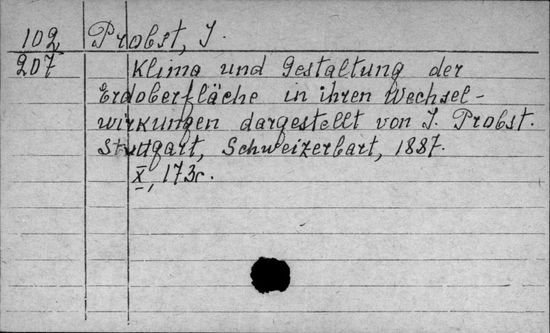 102 Probst, J.
207 Klima und Gestaltung der
Erdoberfläche in ihren Wechsel-
wirkungen dargestellt von J. Probst.
Stuttgart, Schweizerbart, 1887.
X, 173c.